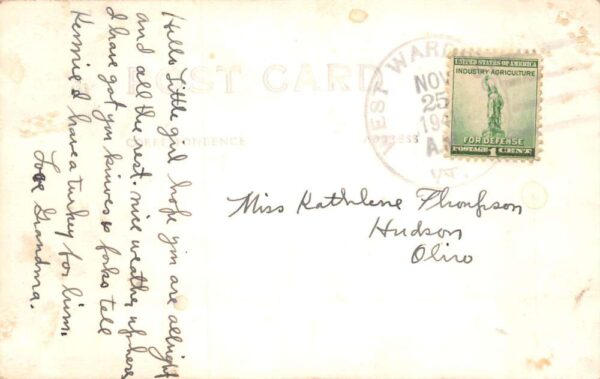 Hello Little girl hope you are allright
and all the rest. nice weather up here
I have got you knives & forks tell
Kennie I have a turkey for him.
Love Grandma.
POST CARD
CORRESPONDENCE
ADDRESS
WEST WARD
NOV
25
19
A.
VT.
UNITED STATES OF AMERICA
INDUSTRY AGRICULTURE
FOR DEFENSE
POSTAGE 1 CENT
Miss Kathlene Thompson
Hudson
Ohio